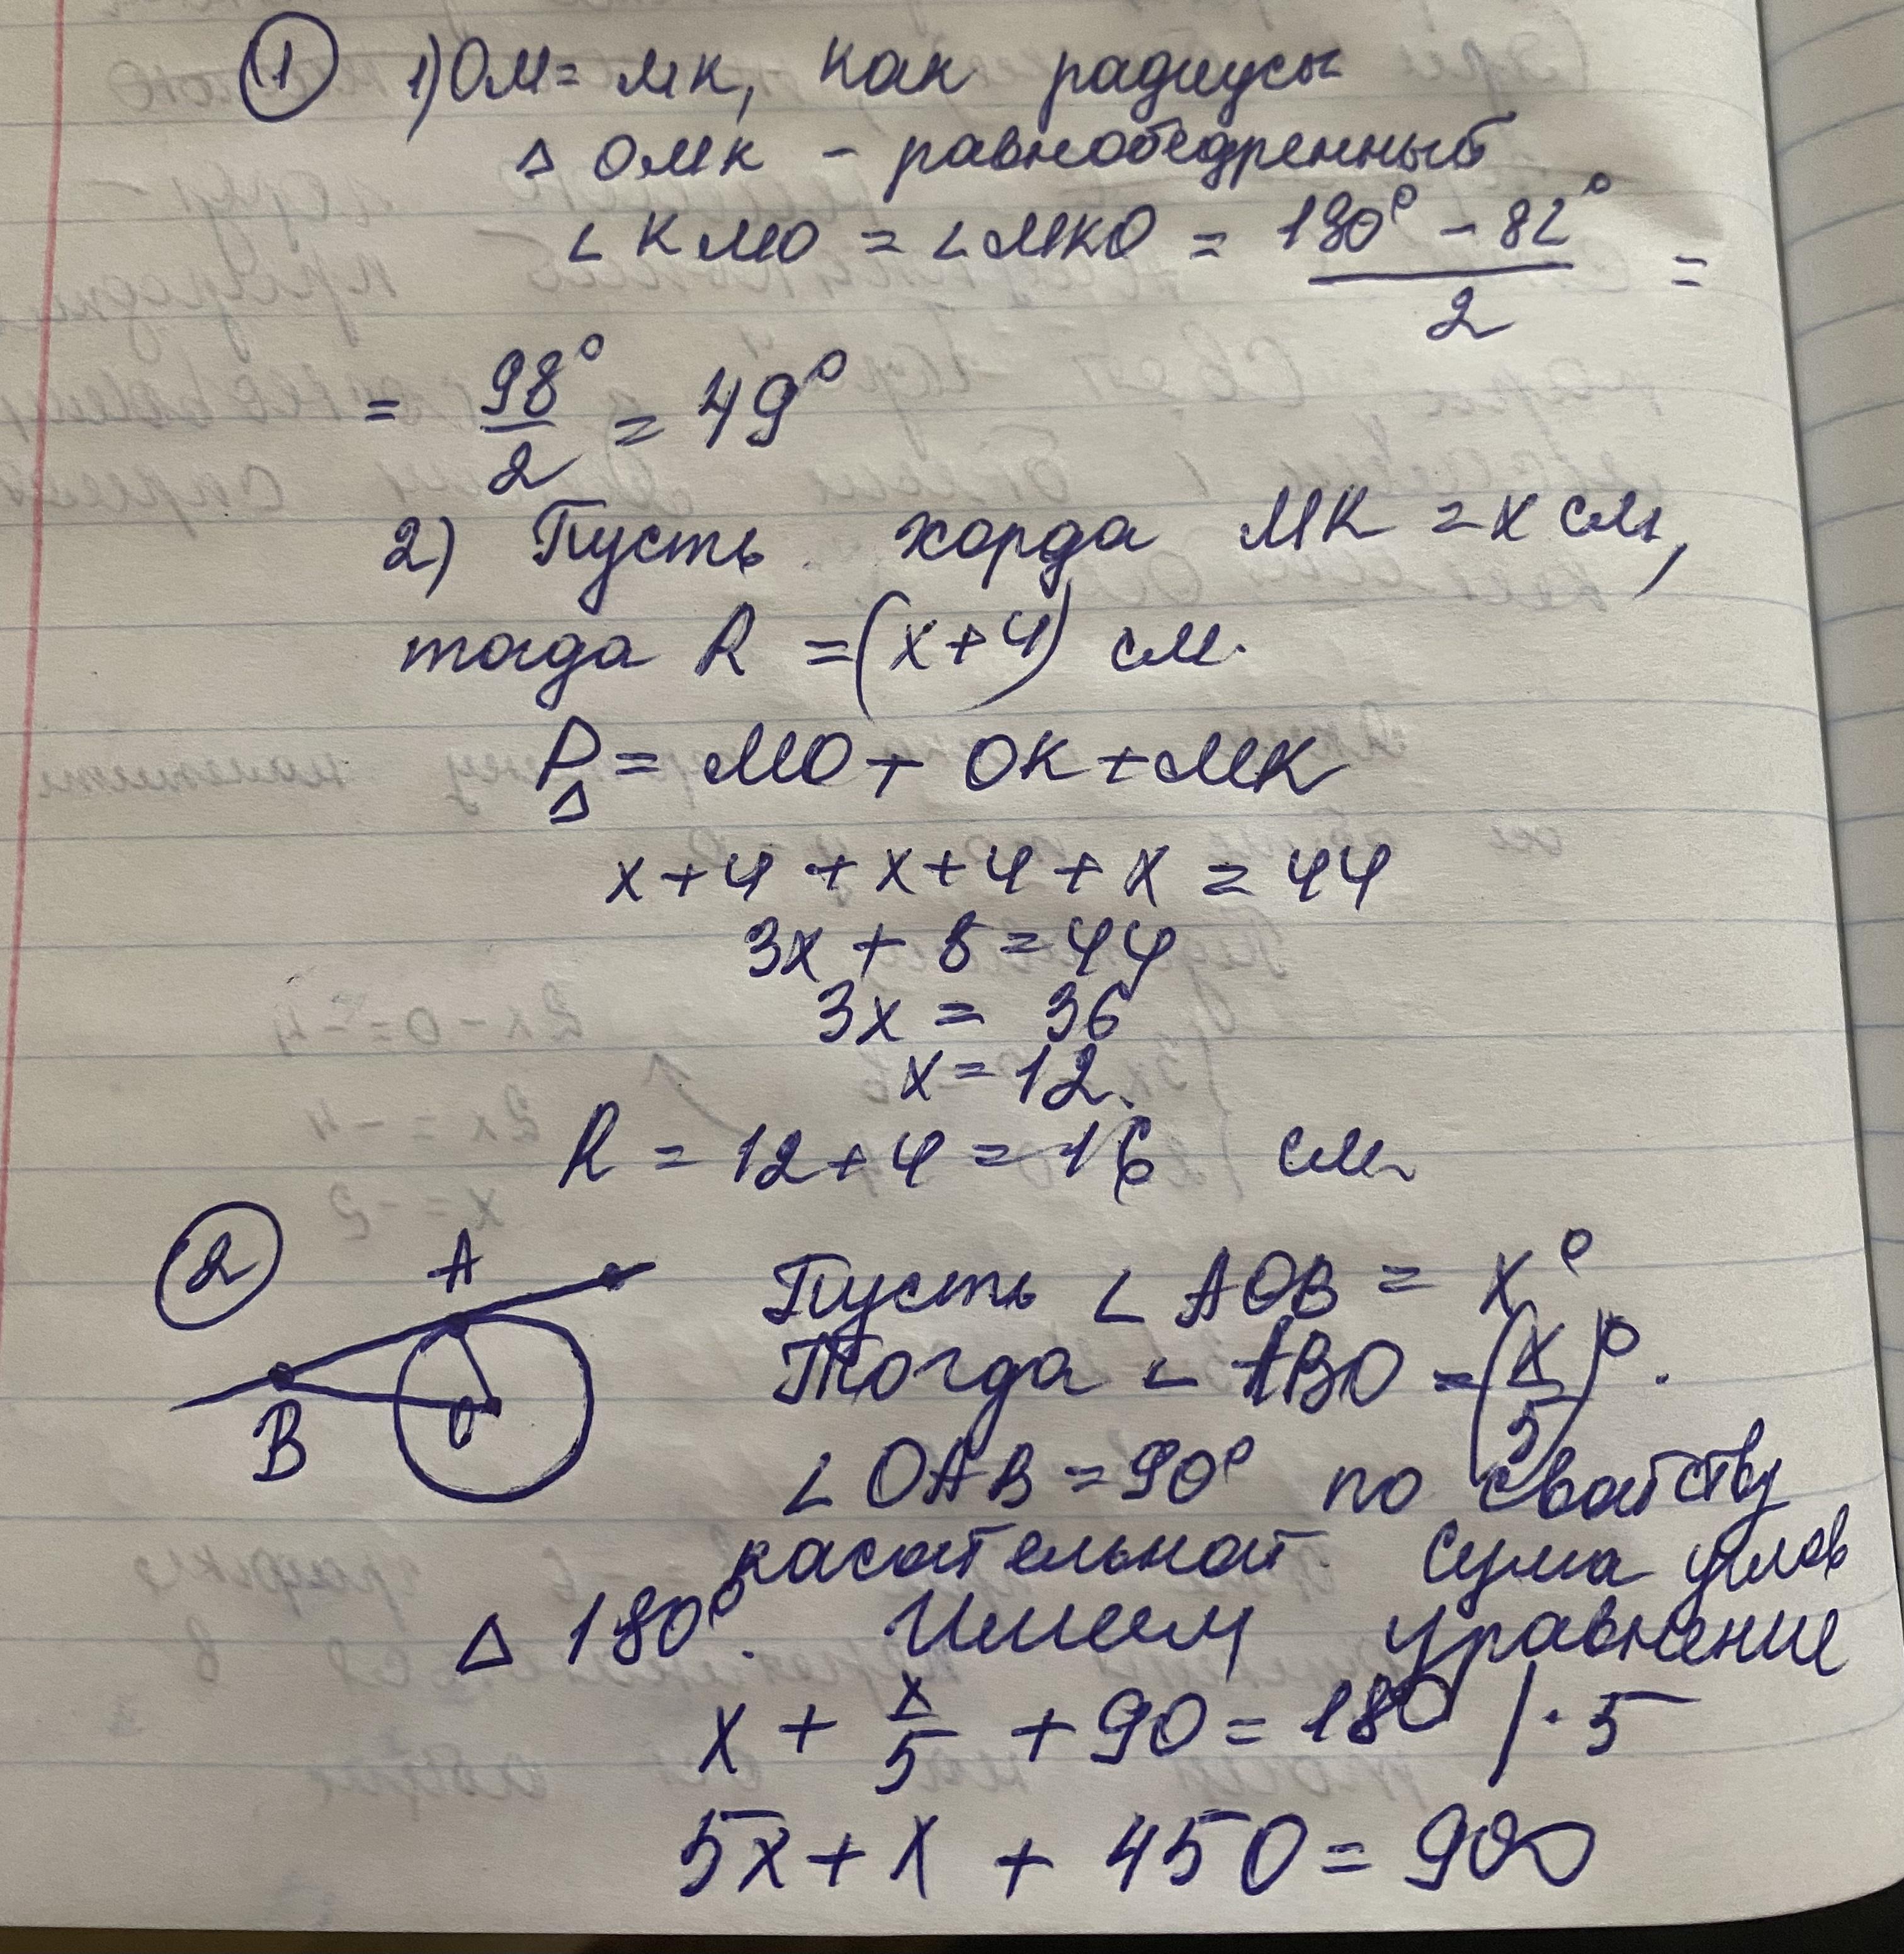 ① 1) ОМ = МК, как радиусы
△ ОМК – равнобедренный
∠ КМО = ∠ МКО = (180° – 82°)/2 =
= 98°/2 = 49°
2) Пусть хорда МК = x см,
тогда R = (x+4) см.
P△ = МО + ОК + МК
x + 4 + x + 4 + x = 44
3x + 8 = 44
3x = 36
x = 12.
R = 12 + 4 = 16 см
②
A
B
O
Пусть ∠ AOB = x°
Тогда ∠ ABO = (x/5)°.
∠ OAB = 90° по свойству
касательной. Сума углов
△ 180°. Имеем уравнение
x + x/5 + 90 = 180 | · 5
5x + x + 450 = 900